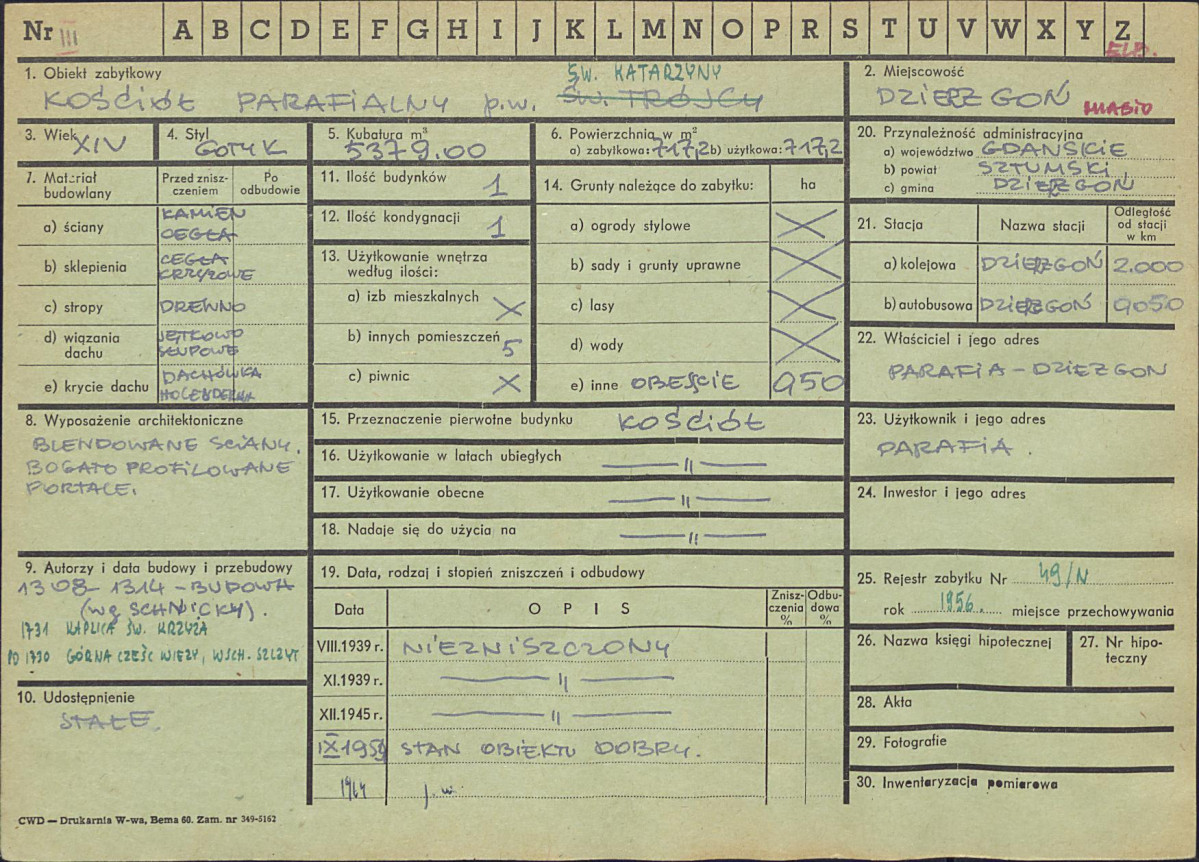 Nr III A B C D E F G H I J K L M N O P R S T U V W X Y Z
ELB.
1. Obiekt zabytkowy
ŚW. KATARZYNY
KOŚCIÓŁ PARAFIALNY p.w. ŚW. TRÓJCY
2. Miejscowość
DZIERZGOŃ MIASTO
3. Wiek XIV
4. Styl GOTYK
5. Kubatura m³
5379.00
6. Powierzchnia w m²
a) zabytkowa: 717,2 b) użytkowa: 717,2
20. Przynależność administracyjna
a) województwo GDAŃSKIE
b) powiat SZTUMSKI
c) gmina DZIERZGOŃ
7. Materiał budowlany
Przed zniszczeniem
Po odbudowie
a) ściany KAMIEŃ
CEGŁA
b) sklepienia CEGŁA
KRZYŻOWE
c) stropy DREWNO
d) wiązania dachu JĘTKOWO
SŁUPOWE
e) krycie dachu DACHÓWKA
HOLENDERKA
11. Ilość budynków 1
12. Ilość kondygnacji 1
13. Użytkowanie wnętrza
według ilości:
a) izb mieszkalnych X
b) innych pomieszczeń 5
c) piwnic X
14. Grunty należące do zabytku: ha
a) ogrody stylowe X
b) sady i grunty uprawne X
c) lasy X
d) wody X
e) inne OBEJŚCIE 0,50
21. Stacja
Nazwa stacji
Odległość
od stacji
w km
a) kolejowa DZIERZGOŃ 2.000
b) autobusowa DZIERZGOŃ 0,050
22. Właściciel i jego adres
PARAFIA – DZIEZGON
8. Wyposażenie architektoniczne
BLENDOWANE SCIANY.
BOGATO PROFILOWANE
PORTALE.
15. Przeznaczenie pierwotne budynku KOŚCIÓŁ
16. Użytkowanie w latach ubiegłych —〃 —
17. Użytkowanie obecne — 〃 —
18. Nadaje się do użycia na — 〃 —
23. Użytkownik i jego adres
PARAFIA.
24. Inwestor i jego adres
9. Autorzy i data budowy i przebudowy
1308 – 1314 – BUDOWA
(wg SCHMICKY).
1731 KAPLICA ŚW. KRZYŻA
PO 1730 GÓRNA CZEŚC WIEŻY, WSCH. SZCZYT
10. Udostępnienie
STAŁE.
19. Data, rodzaj i stopień zniszczeń i odbudowy
Data
OPIS
Zniszczenia %
Odbudowa %
VIII.1939 r. NIEZNISZCZONY
XI.1939 r. — 〃 —
XII.1945 r. — 〃 —
IX 1959 STAN OBIEKTU DOBRY.
1964 j.w.
25. Rejestr zabytku Nr 49/N
rok 1956. miejsce przechowywania
26. Nazwa księgi hipotecznej
27. Nr hipoteczny
28. Akta
29. Fotografie
30. Inwentaryzacja pomiarowa
CWD — Drukarnia W-wa, Bema 60. Zam. nr 349-5162